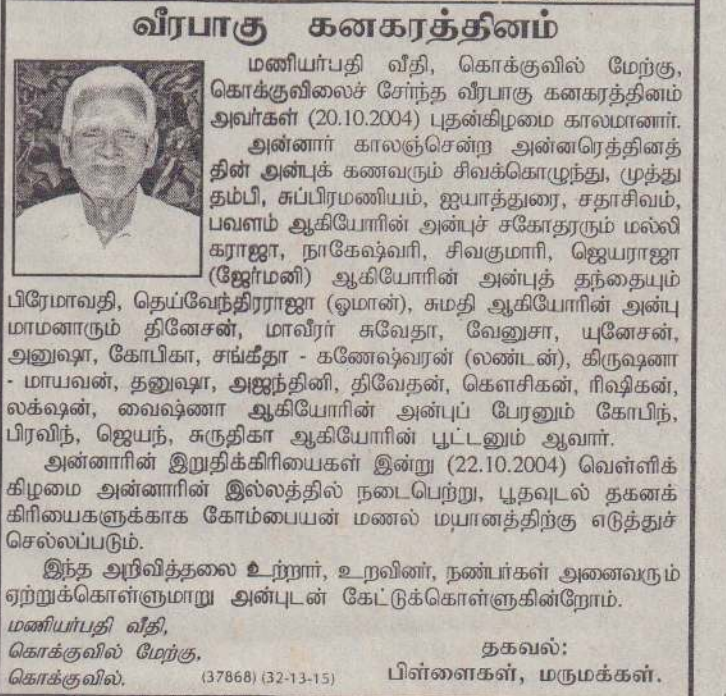 வீரபாகு கனகரத்தினம்
மணியர்பதி வீதி, கொக்குவில் மேற்கு,
கொக்குவிலைச் சேர்ந்த வீரபாகு கனகரத்தினம்
அவர்கள் (20.10.2004) புதன்கிழமை காலமானார்.
அன்னார் காலஞ்சென்ற அன்னரெத்தினத்
தின் அன்புக் கணவரும் சிவக்கொழுந்து, முத்து
தம்பி, சுப்பிரமணியம், ஐயாத்துரை, சதாசிவம்,
பவளம் ஆகியோரின் அன்புச் சகோதரரும் மல்லி
கராஜா, நாகேஷ்வரி, சிவகுமாரி, ஜெயராஜா
(ஜேர்மனி) ஆகியோரின் அன்புத் தந்தையும்
பிரேமாவதி, தெய்வேந்திரராஜா (ஓமான்), சுமதி ஆகியோரின் அன்பு
மாமனாரும் தினேசன், மாவீரர் சுவேதா, வேனுசா, யுனேசன்,
அனுஷா, கோபிகா, சங்கீதா - கணேஷ்வரன் (லண்டன்), கிருஷனா
- மாயவன், தனுஷா, அஜந்தினி, திவேதன், கௌசிகன், ரிஷிகன்,
லக்ஷன், வைஷ்ணா ஆகியோரின் அன்புப் பேரனும் கோபிந்,
பிரவிந், ஜெயந், சுருதிகா ஆகியோரின் பூட்டனும் ஆவார்.
அன்னாரின் இறுதிக்கிரியைகள் இன்று (22.10.2004) வெள்ளிக்
கிழமை அன்னாரின் இல்லத்தில் நடைபெற்று, பூதவுடல் தகனக்
கிரியைகளுக்காக கோம்பையன் மணல் மயானத்திற்கு எடுத்துச்
செல்லப்படும்.
இந்த அறிவித்தலை உற்றார், உறவினர், நண்பர்கள் அனைவரும்
ஏற்றுக்கொள்ளுமாறு அன்புடன் கேட்டுக்கொள்ளுகின்றோம்.
மணியர்பதி வீதி,
கொக்குவில் மேற்கு,
கொக்குவில். (37868) (32-13-15)
தகவல்:
பிள்ளைகள், மருமக்கள்.